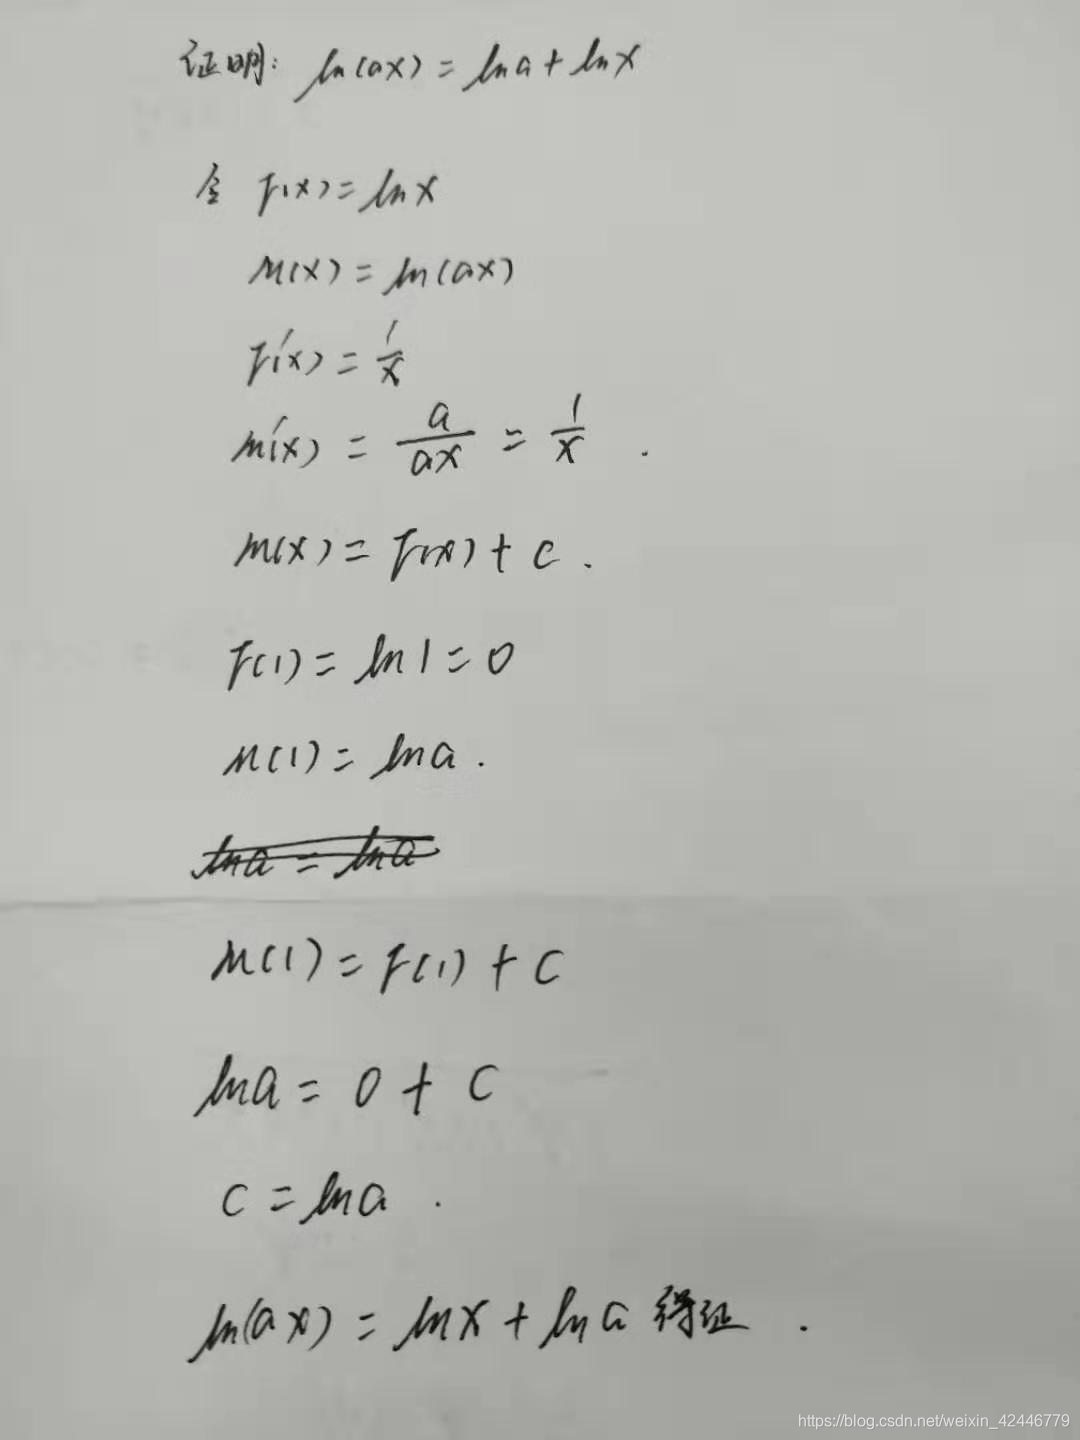 证明: ln(ax) = lna + lnx
令 f(x) = lnx
m(x) = ln(ax)
f'(x) = 1/x
m'(x) = a/ax = 1/x .
m(x) = f(x) + c .
f(1) = ln1 = 0
m(1) = lna .
lna = lna
m(1) = f(1) + c
lna = 0 + c
c = lna .
ln(ax) = lnx + lna 得证 .
https://blog.csdn.net/weixin_42446779